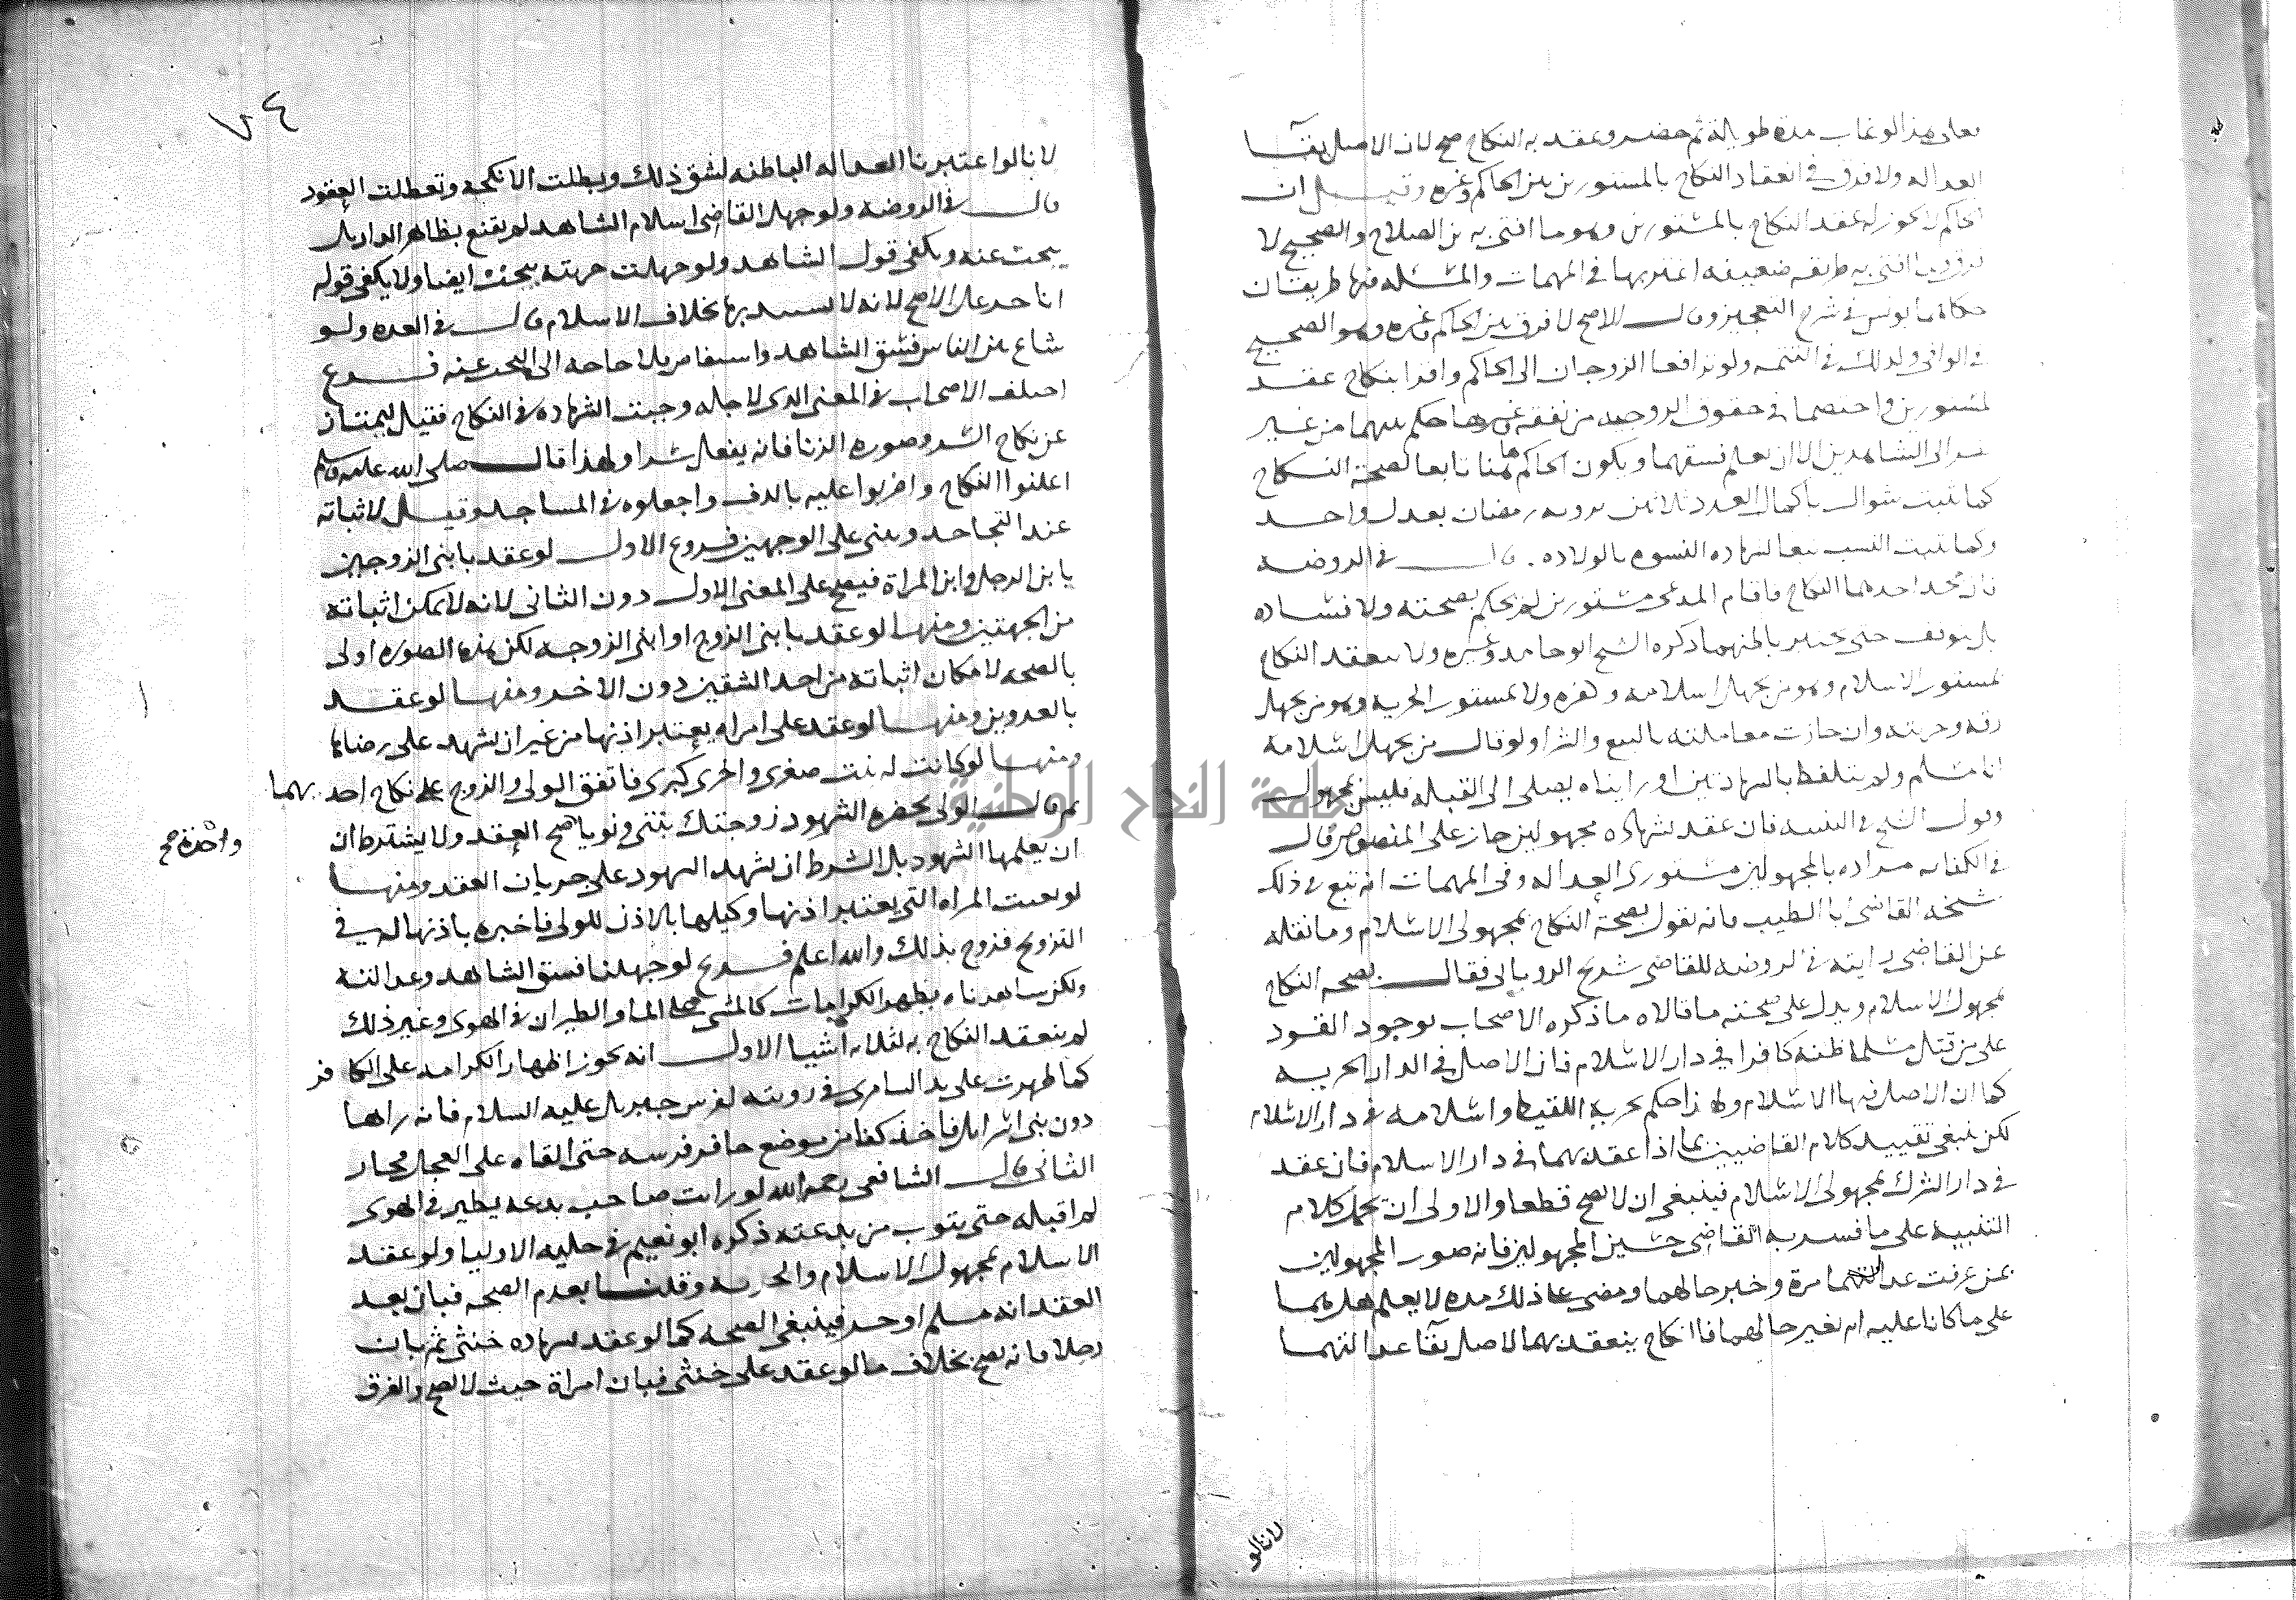 فعلى هذا لو غاب مدة طويلة ثم حضر وعقد به النكاح صح لان الاصل بقا
العداله ولا فرق في انعقاد النكاح بالمستورين بين الحاكم وغيره وقيل ان
الحاكم لا يجوز له عقد النكاح بالمستورين وهو ما افتى به بن الصلاح والصحيح لا
فرق وما افتى به طريقه ضعيفه اغتر بها في المهمات والمسئله فيها طريقان
حكاهما يونس في شرح التعجيز وقال الاصح لا فرق بين الحاكم وغيره وهو الصحيح
في الوافي ولذلك في التتمه ولو ترافعا الزوجان الى الحاكم واقرا بنكاح عقد
لمستورين واختصما في حقوق الزوجيه من نفقه وغيرها حكم بينهما من غير
نظر الى الشاهدين الا ان يعلم فسقهما ويكون الحاكم هنا تابعا لصحة النكاح
كما تثبت شوال باكمال العدد ثلاثين برويه رمضان بعدل واحد
وكما تثبت النسب تبعا لشهاده النسوه بالولاده . قال في الروضه
فان جحد احدهما النكاح فاقام المدعى مستورين لم يحكم بصحته ولا فساده
بل يتوقف حتى يخبر باطنهما ذكره الشيخ ابو حامد وغيره ولا ينعقد النكاح
لمستور الاسلام وهو من يجهل اسلامه وكفره ولا لمستور الحريه وهو من يجهل
رقه وحريته وان جازت معاملته بالبيع والشرا ولو قال من يجهل اسلامه
انا مسلم ولم يتلفظ بالشهادتين او رايناه يصلى الى القبله فليس بمجهول
وقول الشيخ في التنبيه فان عقد بشهاده مجهولين جاز على المنصوص قال
في الكفايه مراده بالمجهولين مستورى العداله وفي المهمات انه تبع في ذلك
شيخه القاضى ابا الطيب فانه يقول بصحة النكاح بمجهولى الاسلام وما نقله
عن القاضى رايته في الروضه للقاضى شريح الرويانى فقال يصحه النكاح
بمجهول الاسلام ويدل على صحته ما قالاه ما ذكره الاصحاب بوجود القود
على من قتل مسلما ظنه كافرا في دار الاسلام فان الاصل في الدار الحريه
كما ان الاصل فيها الاسلام ولهذا حكم بحرية اللقيط واسلامه في دار الاسلام
لكن ينبغى تقييد كلام القاضيين بما اذا عقد بهما في دار الاسلام فان عقد
في دار الشرك بمجهولى الاسلام فينبغى ان لا يصح قطعا والاولى ان يحمل كلام
التنبيه على ما فسر به القاضى حسين المجهولين فانه صور المجهولين
بمن عرفت عدالتهما مرة وخبر حالهما ومضى على ذلك مده لا يعلم هل هما
على ما كانا عليه ام تغير حالهما فالنكاح ينعقد بهما لاصل بقا عدالتهما
لانا لو
٧٤
لانا لو اعتبرنا العداله الباطنه لشق ذلك وبطلت الانكحه وتعطلت العقود
قال في الروضه ولو جهل القاضى اسلام الشاهد لم يقنع بظاهر الدار بل
يبحث عنه ويكفى قول الشاهد ولو جهلت حريته بحث ايضا ولا يكفى قوله
انا حر على الاصح لانه لا يستبد بها بخلاف الاسلام قال في العده ولو
شاع بين الناس فسق الشاهد واستفاض بلا حاجه الى البحث عنه فرع
اختلف الاصحاب في المعنى الذى لاجله وجبت الشهاده في النكاح فقيل ليمتاز
عن نكاح السر وصوره الزنا فانه يفعل سرا ولهذا قال صلى الله عليه وسلم
اعلنوا النكاح واضربوا عليه بالدف واجعلوه في المساجد وقيل لاثباته
عند التجاحد وبنى على الوجهين فروع الاول لو عقد بابنى الزوجين
بابن الرجل وابن المراة فيصح على المعنى الاول دون الثانى لانه لا يمكن اثباته
من الجهتين ومنها لو عقد بابنى الزوج او ابنى الزوجه لكن هذه الصوره اولى
بالصحه لامكان اثباته من احد الشقين دون الاخر ومنها لو عقد
بالعدوين ومنها لو عقد على امراه يعتبر اذنها من غير ان يشهد على رضاها
ومنها لو كانت له بنت صغرى واخرى كبرى فاتفق الولى والزوج على نكاح احد بهما
ثم قال الولى بحضره الشهود زوجتك بنتى ونويا صح العقد ولا يشترط ان
واحدة صح
ان يعلمها الشهود بل الشرط ان يشهد الشهود على جريان العقد ومنها
لو بعثت المراه التى يعتبر اذنها وكيلها بالاذن للولى فاخبره باذنها له في
التزويج فزوج بذلك والله اعلم فرع لو جهلنا فسق الشاهد وعدالته
ولكن شاهدناه يظهر الكرامات كالمشى على الما والطيران في الهوى وغير ذلك
لم ينعقد النكاح به لثلاثه اشيا الاول انه يجوز اظهار الكرامه على الكافر
كما ظهرت على يد السامرى في رويته لفرس جبريل عليه السلام فانه راها
دون بنى اسرايل فاخذ كفا من موضع حافر فرسه حتى القاه على العجل فخار
الثانى قال الشافعى رحمه الله لو رايت صاحب بدعه يطير في الهوى
لم اقبله حتى يتوب من بدعته ذكره ابو نعيم في حليه الاوليا ولو عقد
الاسلام بمجهول الاسلام والحريه وقلنا بعدم الصحه فبان بعد
العقد انه مسلم او حر فينبغى الصحه كما لو عقد بشهاده خنثى ثم بان
رجلا فانه يصح بخلاف ما لو عقد على خنثى فبان امراة حيث لا يصح والفرق